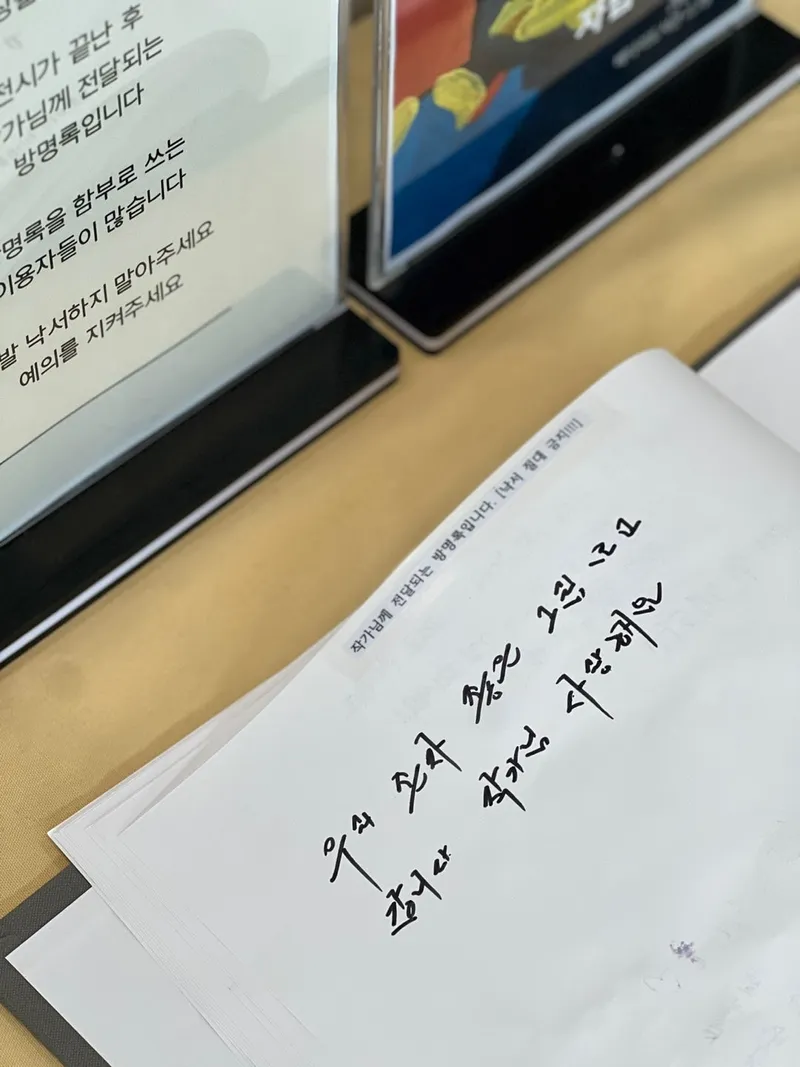 전시가 끝난 후
가님께 전달되는
방명록입니다
명록을 함부로 쓰는
이용자들이 많습니다
발 낙서하지 말아주세요
예의를 지켜주세요
작가님께 전달되는 방명록입니다. [낙서 절대 금지!!!!]
우리 손자 좋은 그림
갑니다 작가님 사랑해요